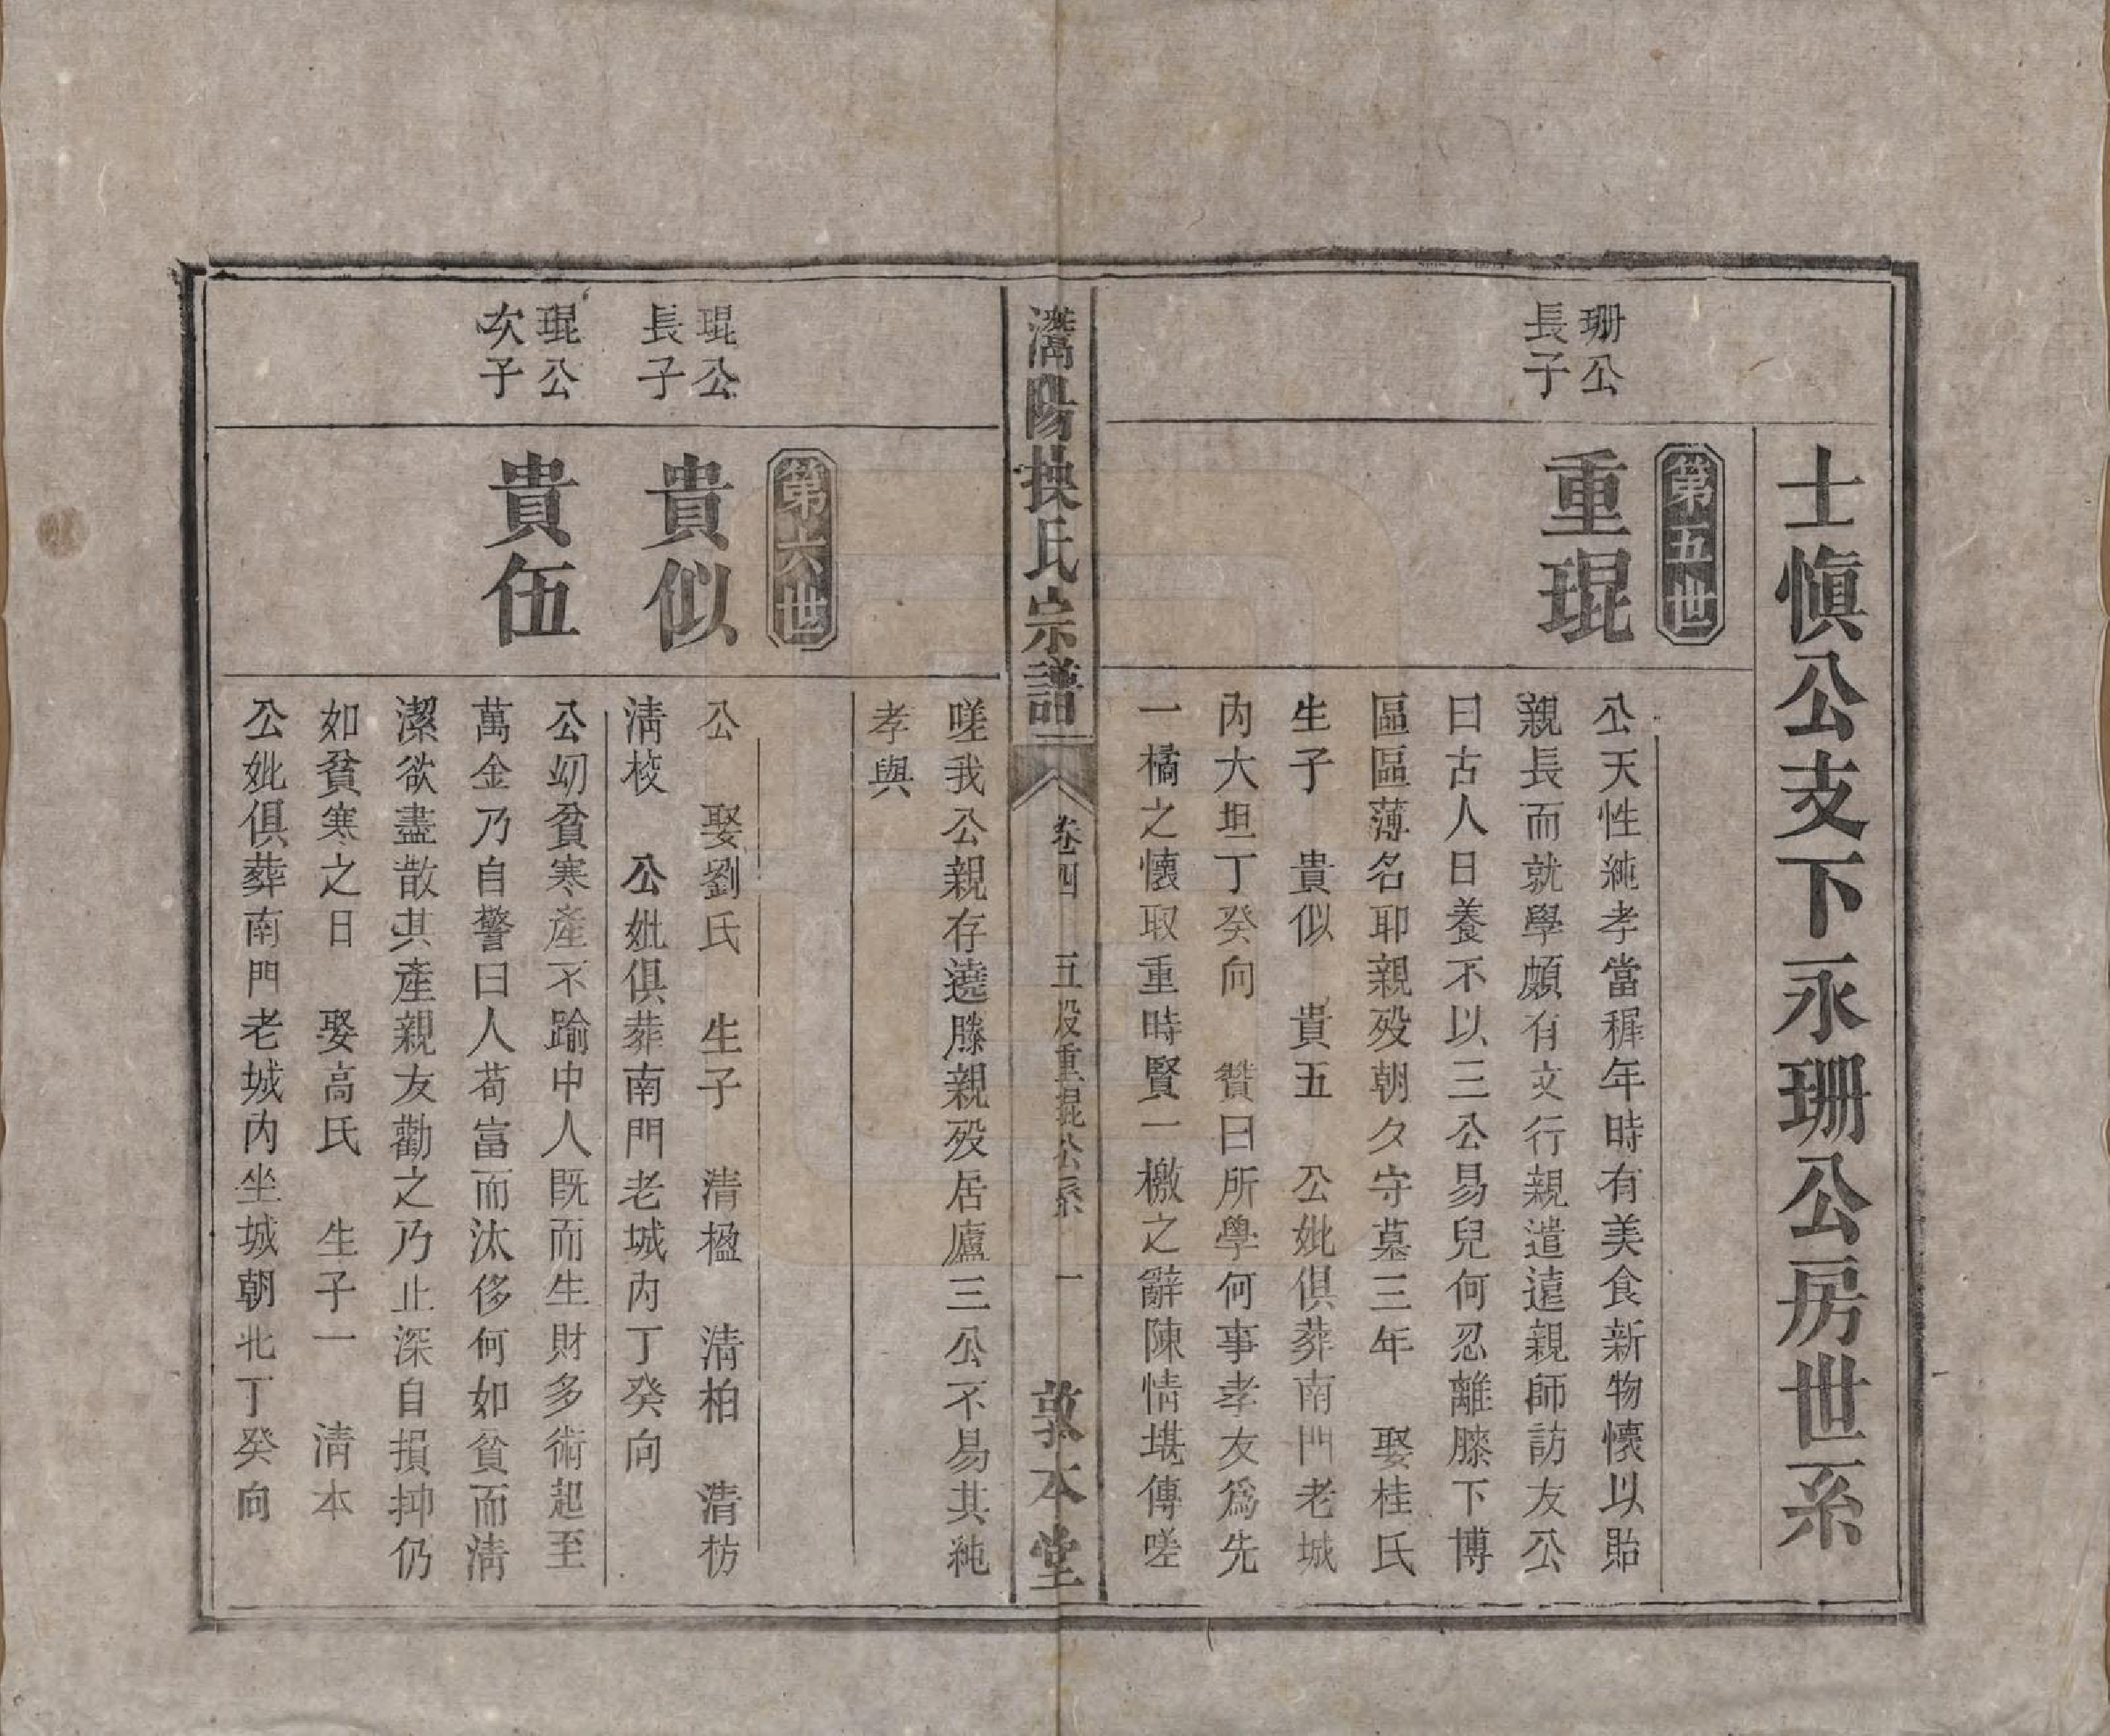 士愼公支下永珊公房世系
第五世
珊公
長子
重琨
公天性純孝當稺年時有美食新物懷以貽
親長而就學頗有文行親遣遠親師訪友公
曰古人日養不以三公易兒何忍離膝下博
區區薄名耶親殁朝夕守墓三年 娶桂氏
生子 貴似 貴五 公妣俱葬南門老城
內大坦丁癸向 贊曰所學何事孝友爲先
一橘之懷取重時賢一檄之辭陳情堪傳嗟
灊陽操氏宗譜 卷四 五股重琨公系 一 敦本堂
嗟我公親存遶膝親殁居廬三公不易其純
孝與
第六世
琨公
長子
貴似
公 娶劉氏 生子 清楹 清柏 清枋
清梭 公妣俱葬南門老城內丁癸向
琨公
次子
貴伍
公幼貧寒產不踰中人既而生財多術起至
萬金乃自警曰人苟富而汰侈何如貧而清
潔欲盡散其產親友勸之乃止深自損抑仍
如貧寒之日 娶高氏 生子一 清本
公妣俱葬南門老城內坐城朝北丁癸向